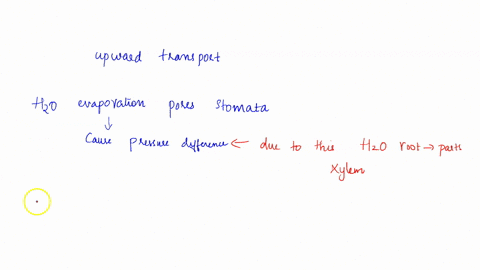 upward transport
H2O evaporation pores stomata
↓
Cause pressure difference ← due to this H2O root → parts
Xylem